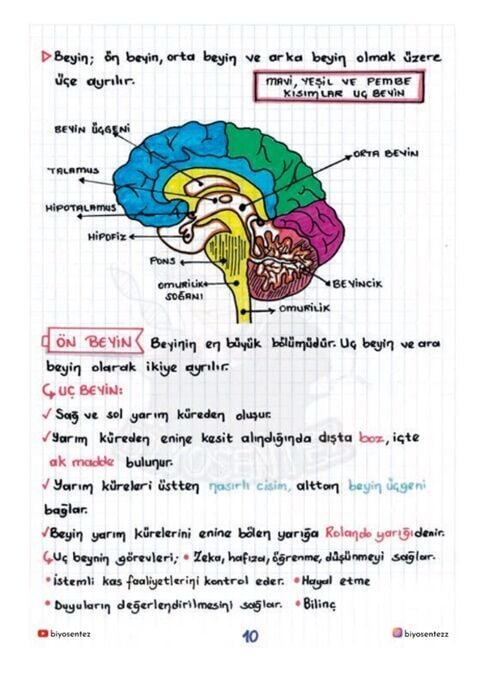 Beyin; ön beyin, orta beyin ve arka beyin olmak üzere
üçe ayrılır.
MAVİ, YEŞİL VE PEMBE
KISIMLAR UÇ BEYİN
BEYİN ÜÇGENİ
TALAMUS
HİPOTALAMUS
HİPOFİZ
PONS
OMURİLİK
SOĞANI
ORTA BEYİN
BEYİNCİK
OMURİLİK
ÖN BEYİN Beyinin en büyük bölümüdür. Uç beyin ve ara
beyin olarak ikiye ayrılır.
UÇ BEYİN:
✓ Sağ ve sol yarım küreden oluşur.
✓ Yarım küreden enine kesit alındığında dışta boz, içte
ak madde bulunur.
✓ Yarım küreleri üstten nasırlı cisim, alttan beyin üçgeni
bağlar.
✓ Beyin yarım kürelerini enine bölen yarığa Rolando yarığı denir.
Uç beynin görevleri; • Zeka, hafıza, öğrenme, düşünmeyi sağlar.
• İstemli kas faaliyetlerini kontrol eder. • Hayal etme
• Duyuların değerlendirilmesini sağlar. • Bilinç
biyosentez
10
biyosentezz